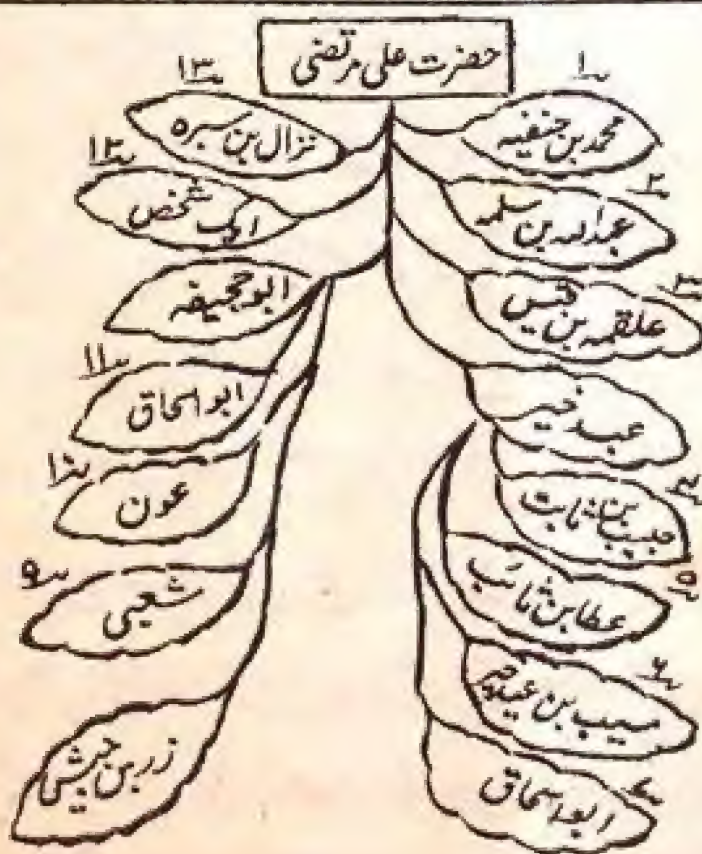 حضرت علی مرتضی
۱
محمد بن حنفیہ
۲
عبداللہ بن سلمہ
۳
علقمہ بن قیس
عبد خیر
۴
حبیب بن ثابت
۵
عطا بن سائب
۶
مسیب بن عبد خیر
ابو اسحاق
۱۳
نزال بن سبرہ
۱۲
ایک شخص
ابو جحیفہ
۱۱
ابو اسحاق
۱۰
عون
۹
شعبی
زر بن حبیش